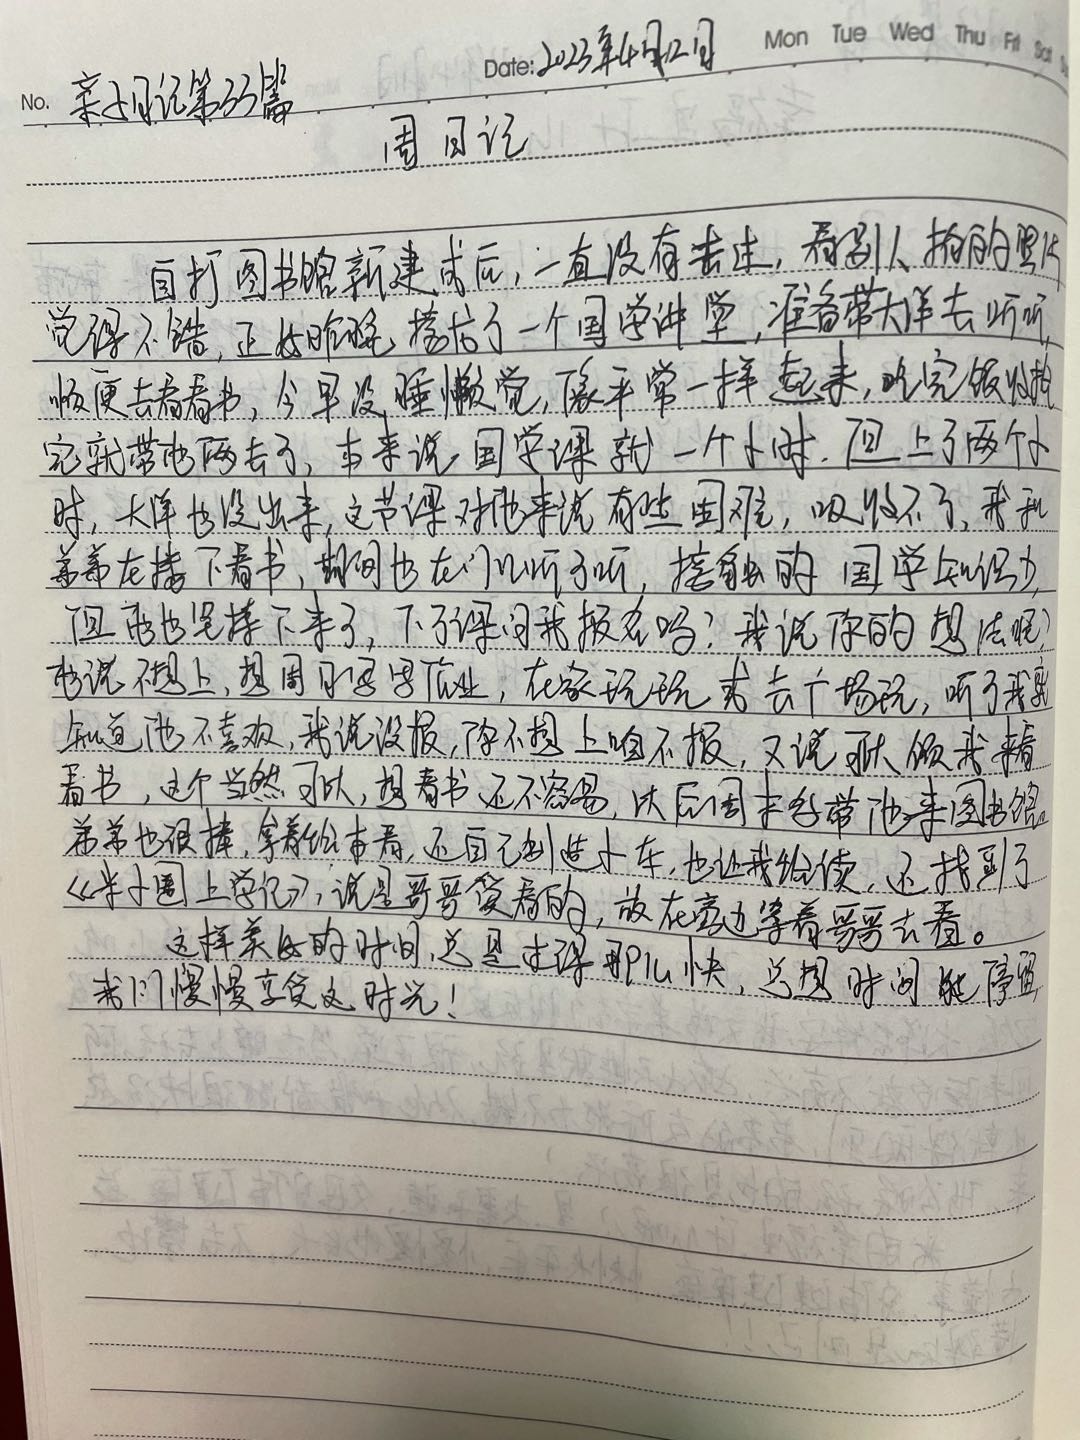 Mon Tue Wed Thu Fri Sat
Date: 2023年4月12日
No. 亲子日记第33篇
周日记
自打图书馆新建成后，一直没有去过，看别人拍的照片
觉得不错，正好昨晚接龙了一个国学讲堂，准备带大洋去听听，
顺便去看看书，今早没睡懒觉，像平常一样起来，吃完饭收拾
完就带他俩去了，本来说国学课就一个小时，但上了两个小
时，大洋也没出来，这节课对他来说有些困难，吸收不了，我和
弟弟在楼下看书，期间也在门口听了听，接触的国学知识少，
但他也坚持下来了，下了课问我报名吗？我说你的想法呢？
他说不想上，想周日写写作业，在家玩玩或去广场玩，听了我就
知道他不喜欢，我说没报，你不想上咱不报，又说可以领我来看
看书，这个当然可以，想看书还不容易，以后周末多带他来图书馆。
弟弟也很棒，拿着绘本看，还自己创造小车，也让我给读，还找到了
《米小圈上学记》，说是哥哥爱看的，放在旁边等着哥哥去看。
这样美好的时间，总是过得那么快，总想时间能停留，
我们慢慢享受这时光！